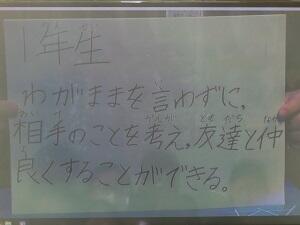 1年生
わがままを言わずに、
相手のことを考え、友達と仲
良くすることができる。